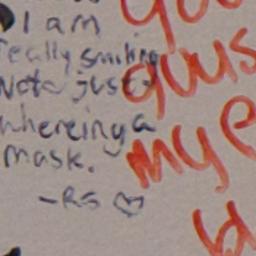 I am
really smiling
Not just
whereing a
mask.
-RS ♡
you
guys